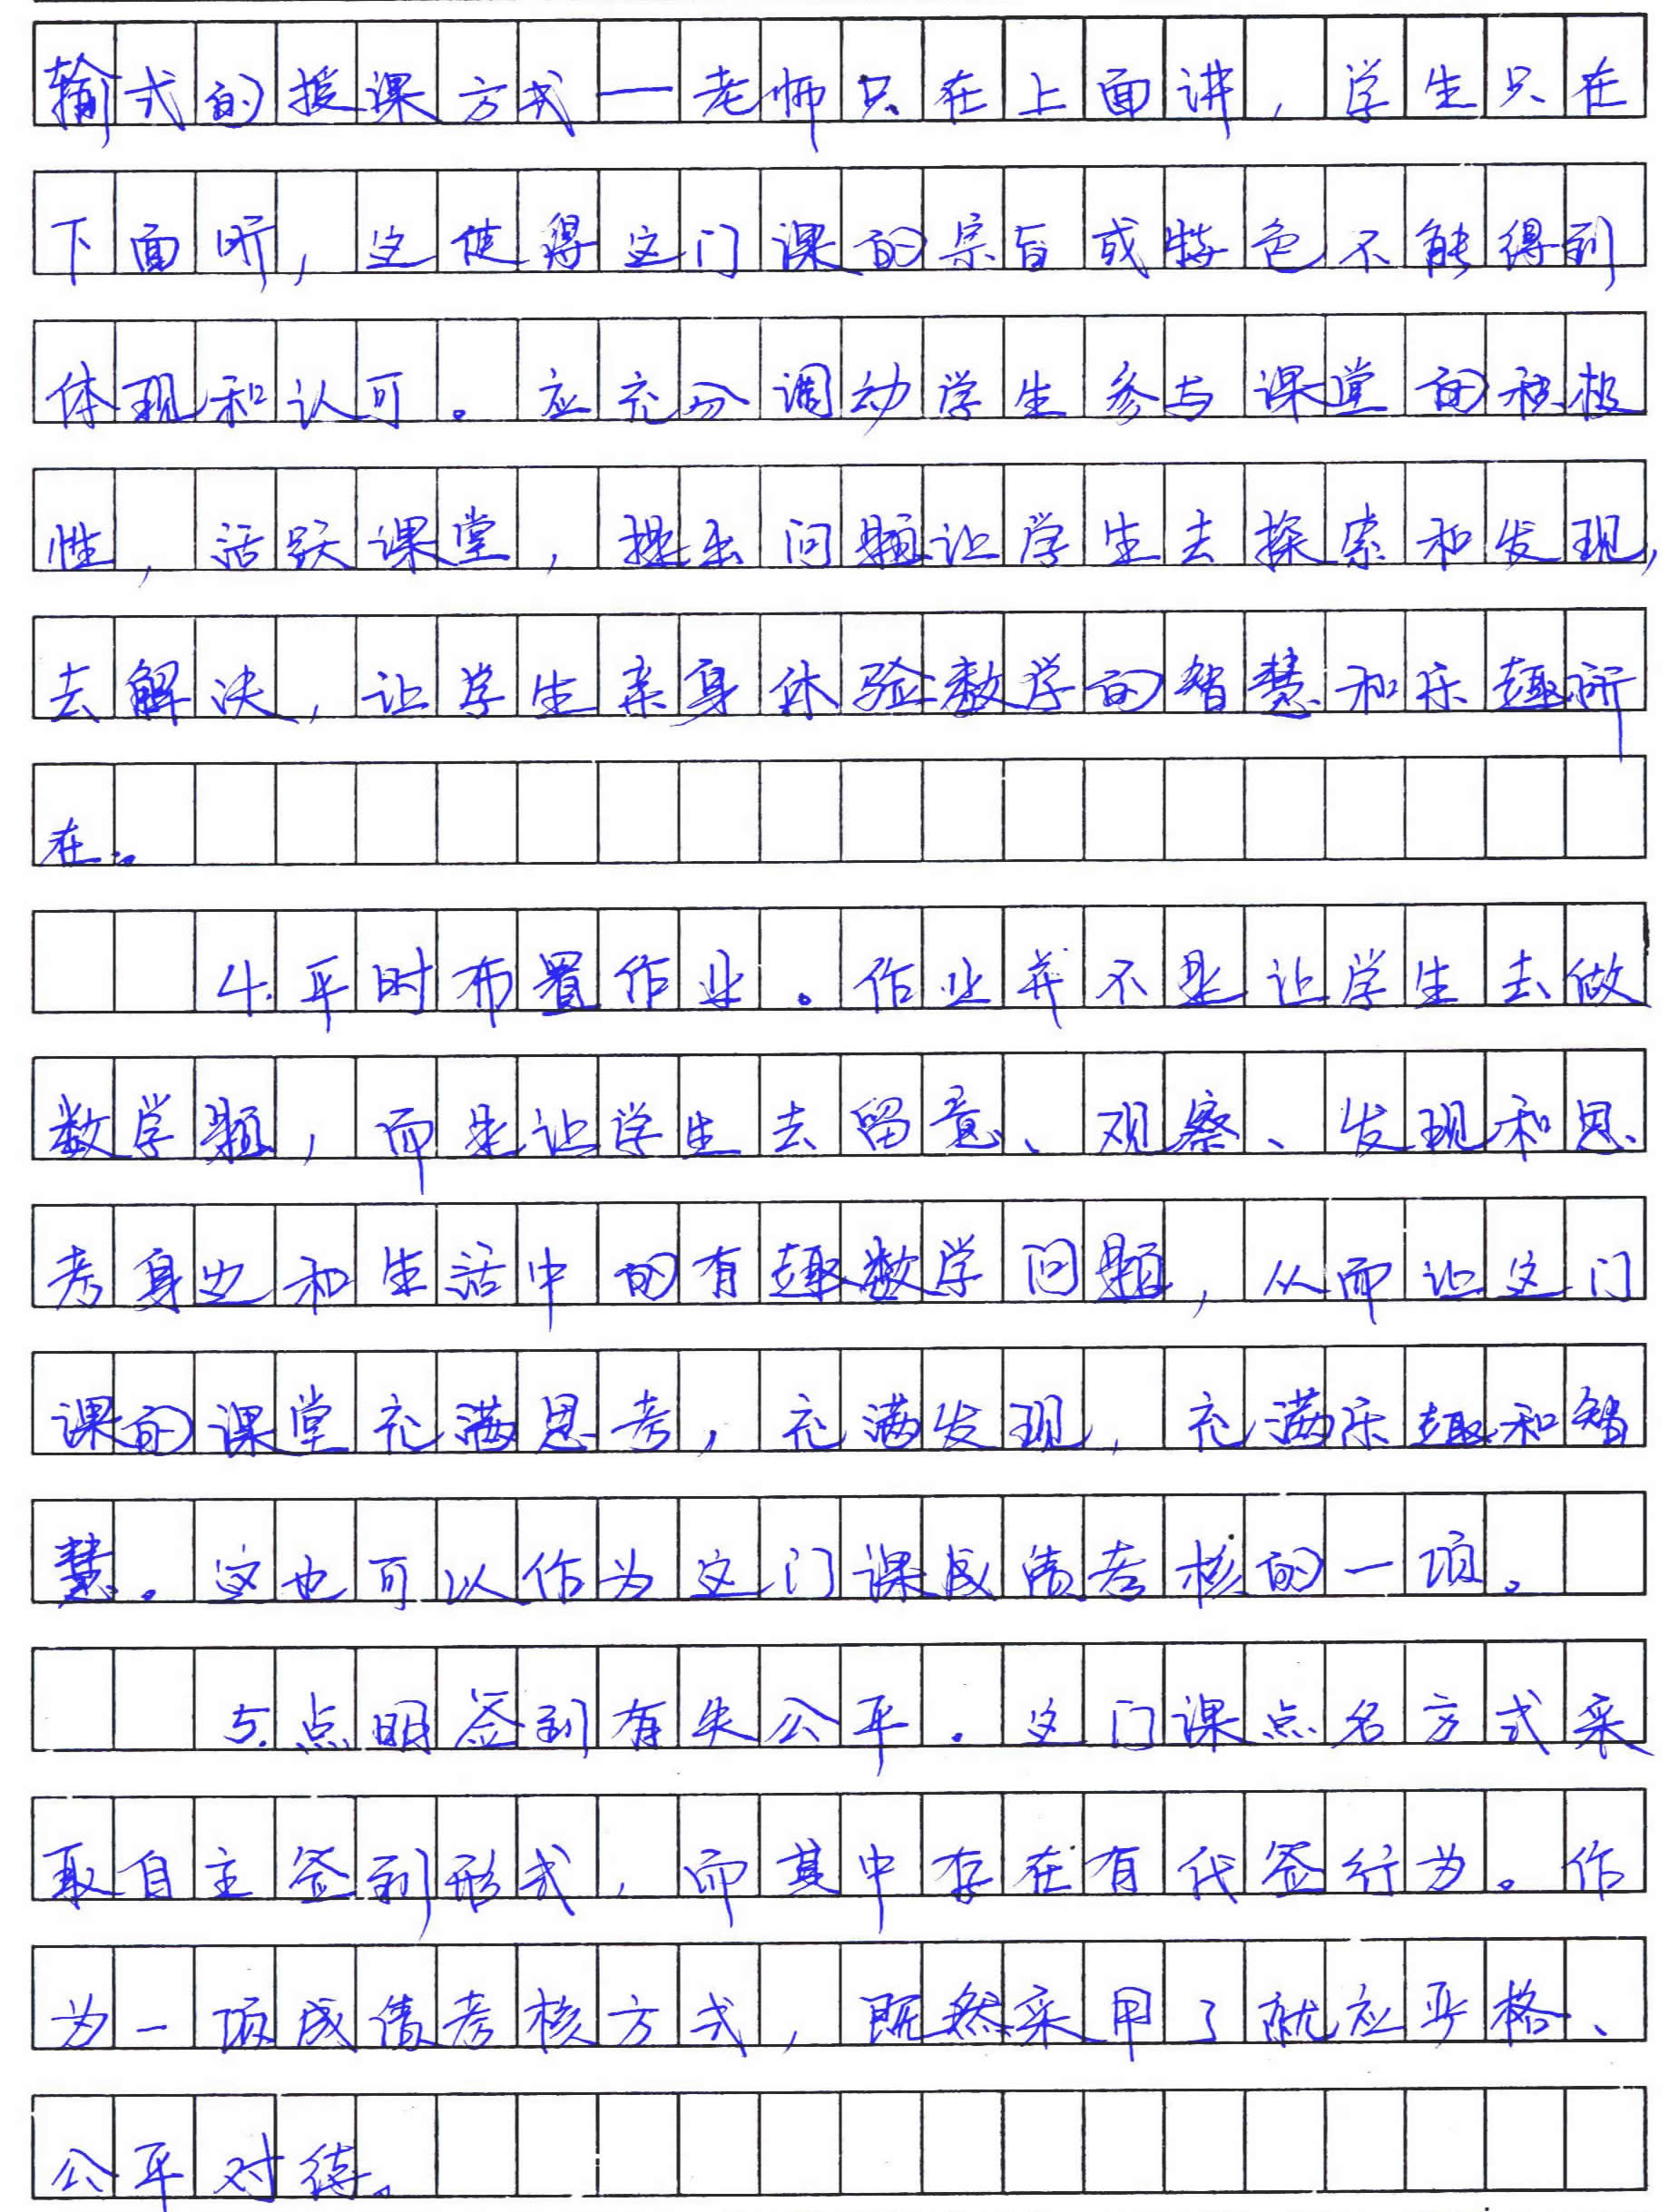 输式的授课方式一老师只在上面讲,学生只在
下面听,这使得这门课的宗旨或特色不能得到
体现和认可。应充分调动学生参与课堂的积极
性,活跃课堂,提出问题让学生去探索和发现,
去解决,让学生亲身体验数学的智慧和乐趣所
在。
4.平时布置作业。作业并不是让学生去做
数学题,而是让学生去留意、观察、发现和思
考身边和生活中的有趣数学问题,从而让这门
课的课堂充满思考,充满发现,充满乐趣和智
慧。这也可以作为这门课成绩考核的一项。
5.点明签到有失公平。这门课点名方式采
取自主签到形式,而其中存在有代签行为。作
为一项成绩考核方式,既然采用了就应严格、
公平对待。